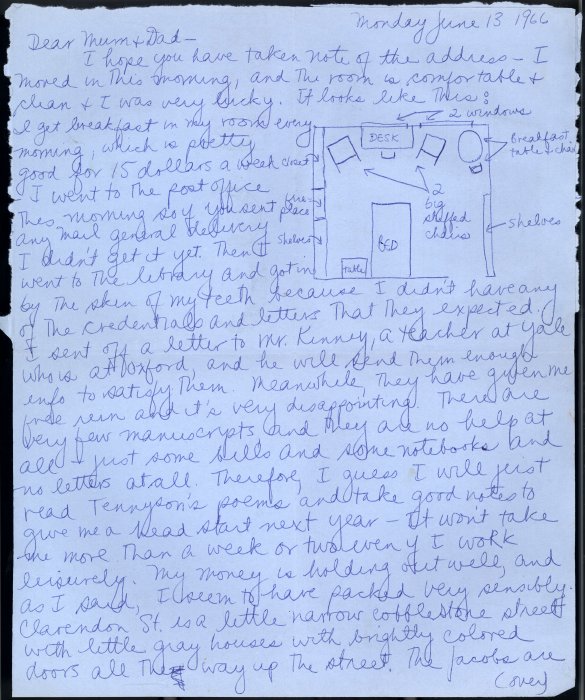 Monday June 13 1966
Dear Mum & Dad—
I hope you have taken note of the address — I
moved in this morning, and the room is comfortable &
clean & I was very lucky. It looks like this:
I get breakfast in my room every
morning, which is pretty
good for 15 dollars a week
- I went to the post office
this morning so if you sent
any mail general delivery
I didn't get it yet. Then I
went to the library and got in
2 windows
DESK
Breakfast
table & chair
closet
2
big
stuffed
chairs
fire-
place
shelves
shelves
BED
table
by the skin of my teeth because I didn't have any
of the credentials and letters that they expected.
I sent off a letter to Mr. Kinney, a teacher at Yale
who is at Oxford, and he will send them enough
info to satisfy them. Meanwhile, they have given me
free rein and it's very disappointing. There are
very few manuscripts, and they are no help at
all - just some bills and some notebooks and
no letters at all. Therefore, I guess I will just
read Tennyson's poems and take good notes to
give me a head start next year — It won't take
me more than a week or two even if I work
leisurely. My money is holding out well, and
as I said, I seem to have packed very sensibly.
Clarendon St. is a little narrow cobblestone street
with little gray houses with brightly colored
doors all the way up the street. The Jacobs are
(over)